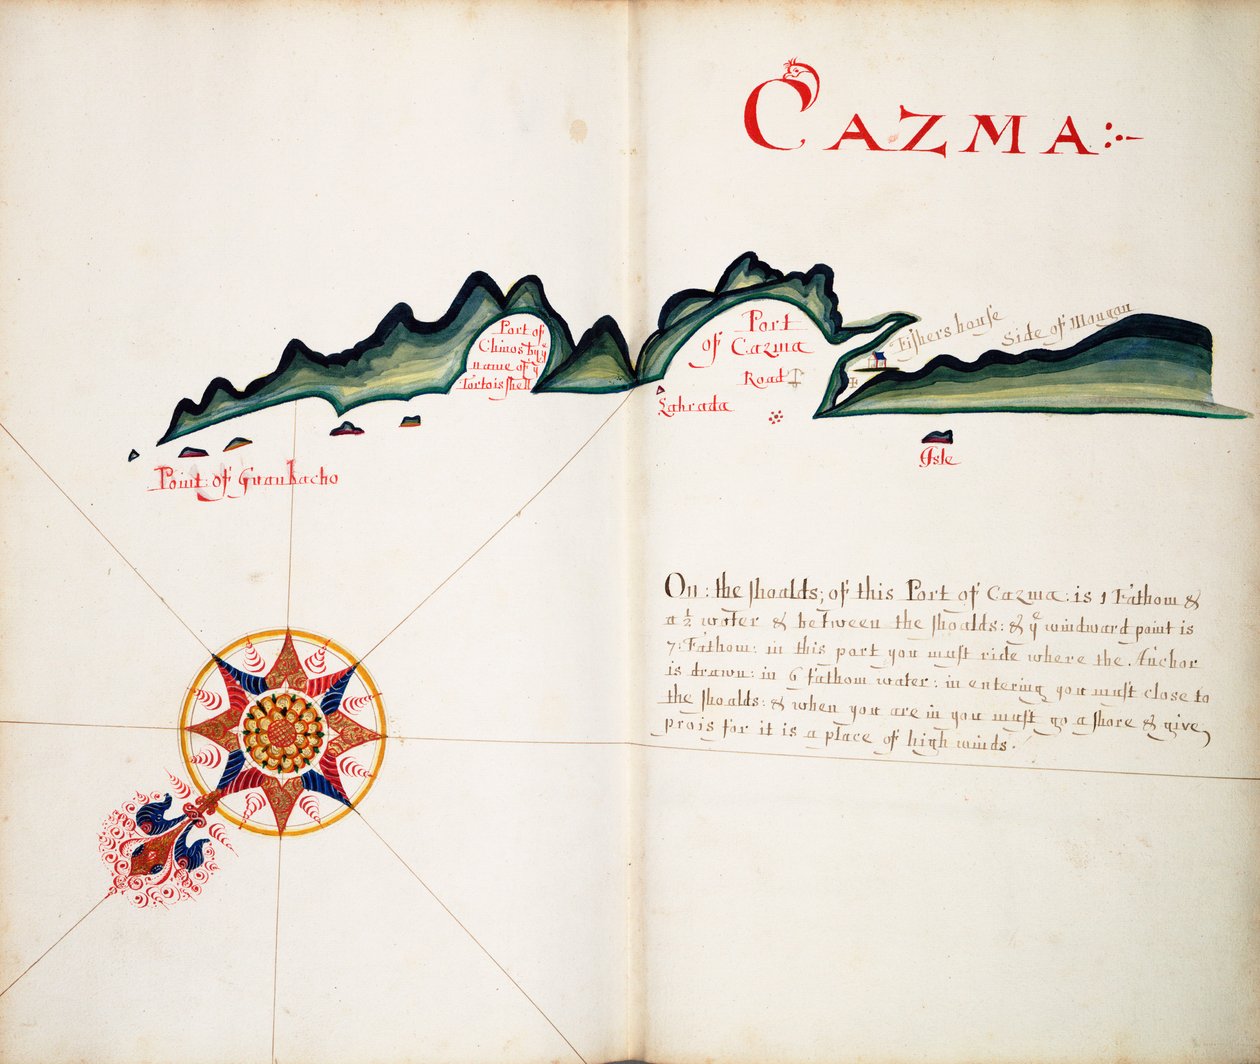 CAZMA
Port of
Chinos by yͤ
name of yͤ
Tortois shell
Port
of Cazma
Road
Lahrada
Fishers house
Side of Mongan
Isle
Point: of Guanbacho
On: the shoalds; of this Port of Cazma: is 1 Fathom &
a ½ woter & between the shoalds: & yͤ windward point is
7: Fathom: in this port you must ride where the Anchor
is drawn: in 6 fathom water: in entering you must close to
the shoalds: & when you are in you must go a shore & give
prois for it is a place of high winds.